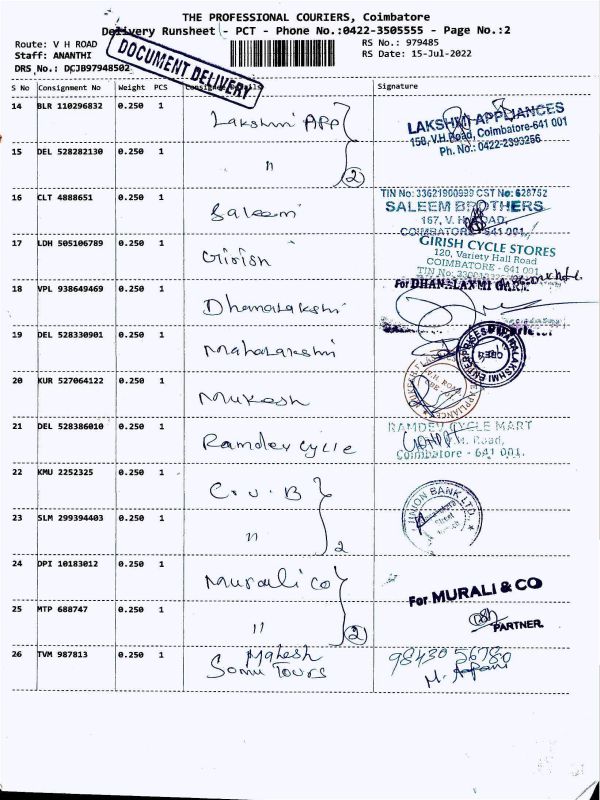 THE PROFESSIONAL COURIERS, Coimbatore
Delivery Runsheet - PCT - Phone No.:0422-3505555 - Page No.:2
Route: V H ROAD
RS No.: 979485
Staff: ANANTHI
RS Date: 15-Jul-2022
DRS No.: DCJB97948502
DOCUMENT DELIVERY
S No Consignment No Weight PCS Signature
14 BLR 110296832 0.250 1 Lakshmi APP
LAKSHMI APPLIANCES
150, V.H.Road, Coimbatore-641 001
Ph. No.: 0422-2393256
15 DEL 528282130 0.250 1 " 2
16 CLT 4888651 0.250 1 Saleem
TIN No: 33621900999 CST No: 628752
SALEEM BROTHERS
167, V. H. ROAD,
COIMBATORE - 641 001.
17 LDH 505106789 0.250 1 Girish
GIRISH CYCLE STORES
120, Variety Hall Road
COIMBATORE - 641 001
TIN No:
18 VPL 938649469 0.250 1 Dhanalakshmi
For DHANALAXMI
19 DEL 528330901 0.250 1 Mahalakshmi
20 KUR 527064122 0.250 1 Mukesh
V.H. ROAD,
21 DEL 528386010 0.250 1 Ramdev cycle
RAMDEV CYCLE MART
V.H. Road,
Coimbatore - 641 001.
22 KMU 2252325 0.250 1 C.U.B
UNION BANK LTD.
23 SLM 299394403 0.250 1 " 2
24 DPI 10183012 0.250 1 Murali co
For MURALI & CO
25 MTP 688747 0.250 1 " 2
PARTNER.
26 TVM 987813 0.250 1 Mahesh
Somu Tours
98430 56780